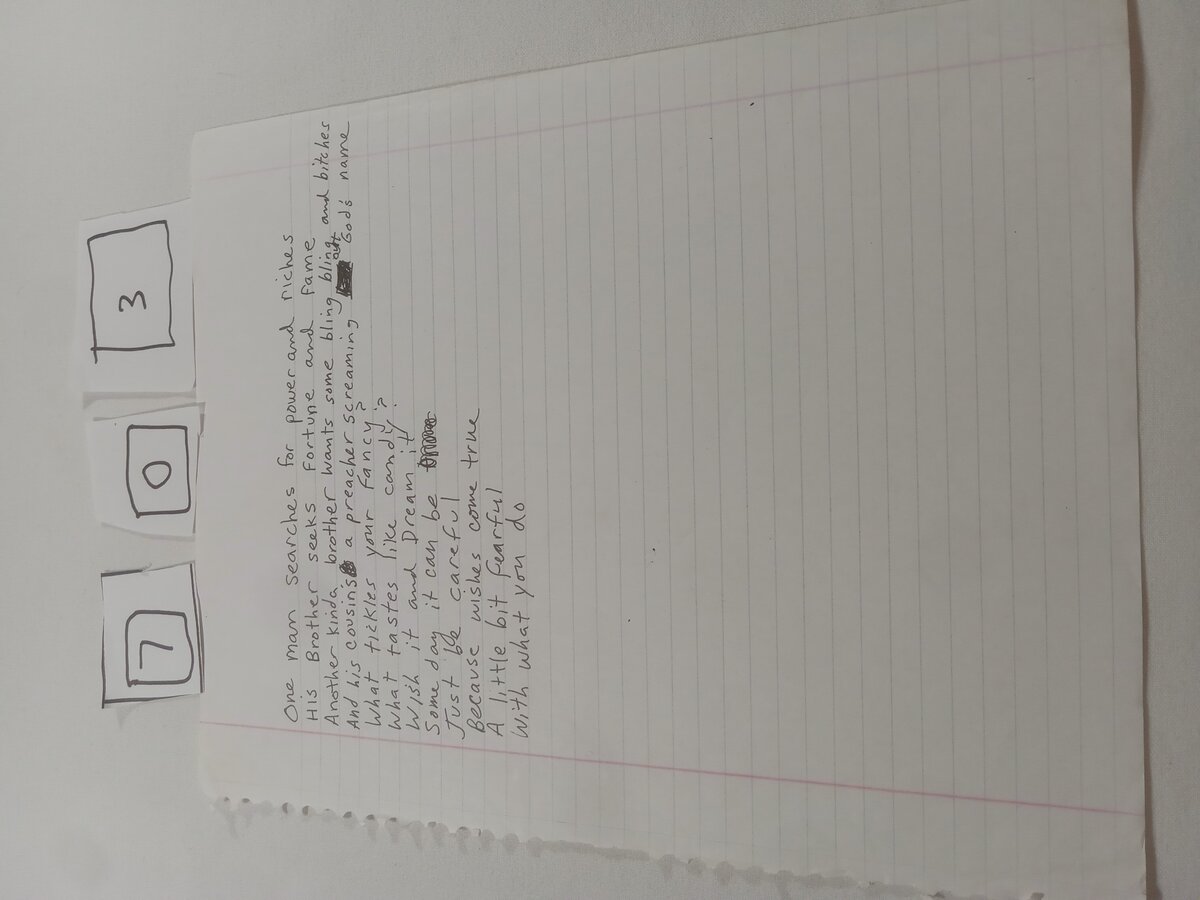 7 0 3
One man searches for power and riches
His Brother seeks Fortune and Fame
Another kinda brother wants some bling bling and bitches
And his cousins a preacher screaming out God's name
What tickles your Fancy?
What tastes like candy?
Wish it and Dream it
Some day it can be
Just be careful
Because wishes come true
A little bit fearful
With what you do